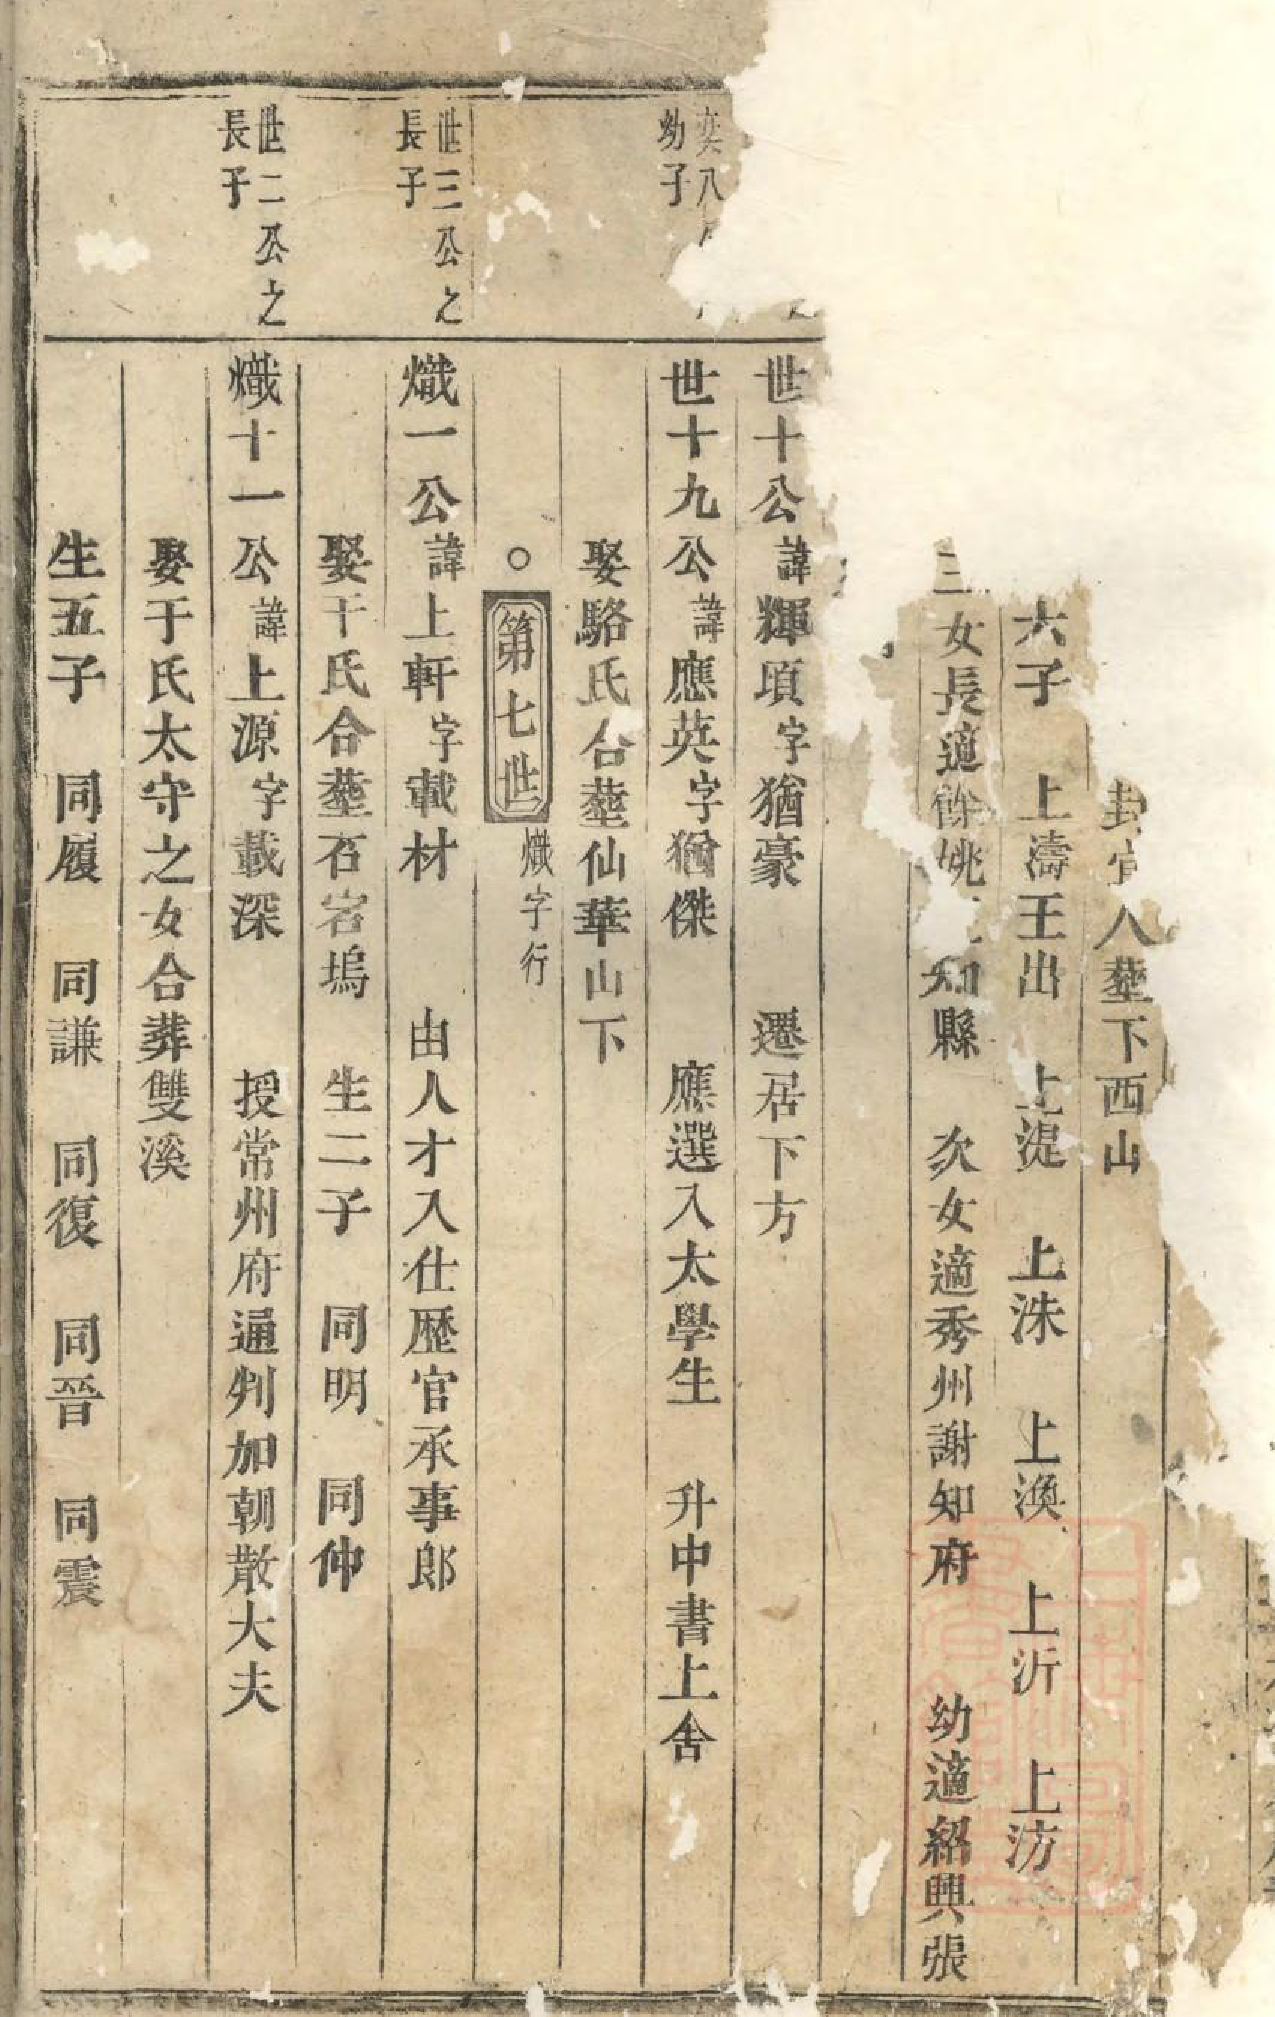 封宜人塟下西山
六子　上濤王出　上混　上洙　上渙　上沂　上汸
三女長適餘姚　知縣　次女適秀州謝知府　幼適紹興張
世十公諱輝項字猶豪　遷居下方
奕八
幼子
世十九公諱應英字猶傑　應選入太學生　升中書上舍
娶駱氏合塟仙華山下
○第七世熾字行
世三公之
長子
熾一公諱上軒字載材　由人才入仕歷官承事郎
娶于氏合塟石宕塢　生二子　同明　同仲
世二公之
長子
熾十一公諱上源字載深　授常州府通判加朝散大夫
娶于氏太守之女合葬雙溪
生五子　同履　同謙　同復　同晉　同震